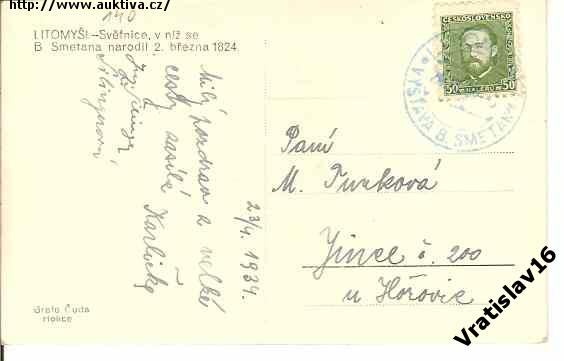 http://www.auktiva.cz/
140
LITOMYŠL–Světnice, v níž se
B. Smetana narodil 2. března 1824.
Milý pozdrav z velké
cesty zasílá Karlička
23/4. 1934.
ČESKOSLOVENSKO
50 HALÉŘŮ 50
VÝSTAVA B. SMETANY
Paní
M. Purková
Jince č. 200
u Hořovic
Grafo Čuda
Holice
Vratislav16